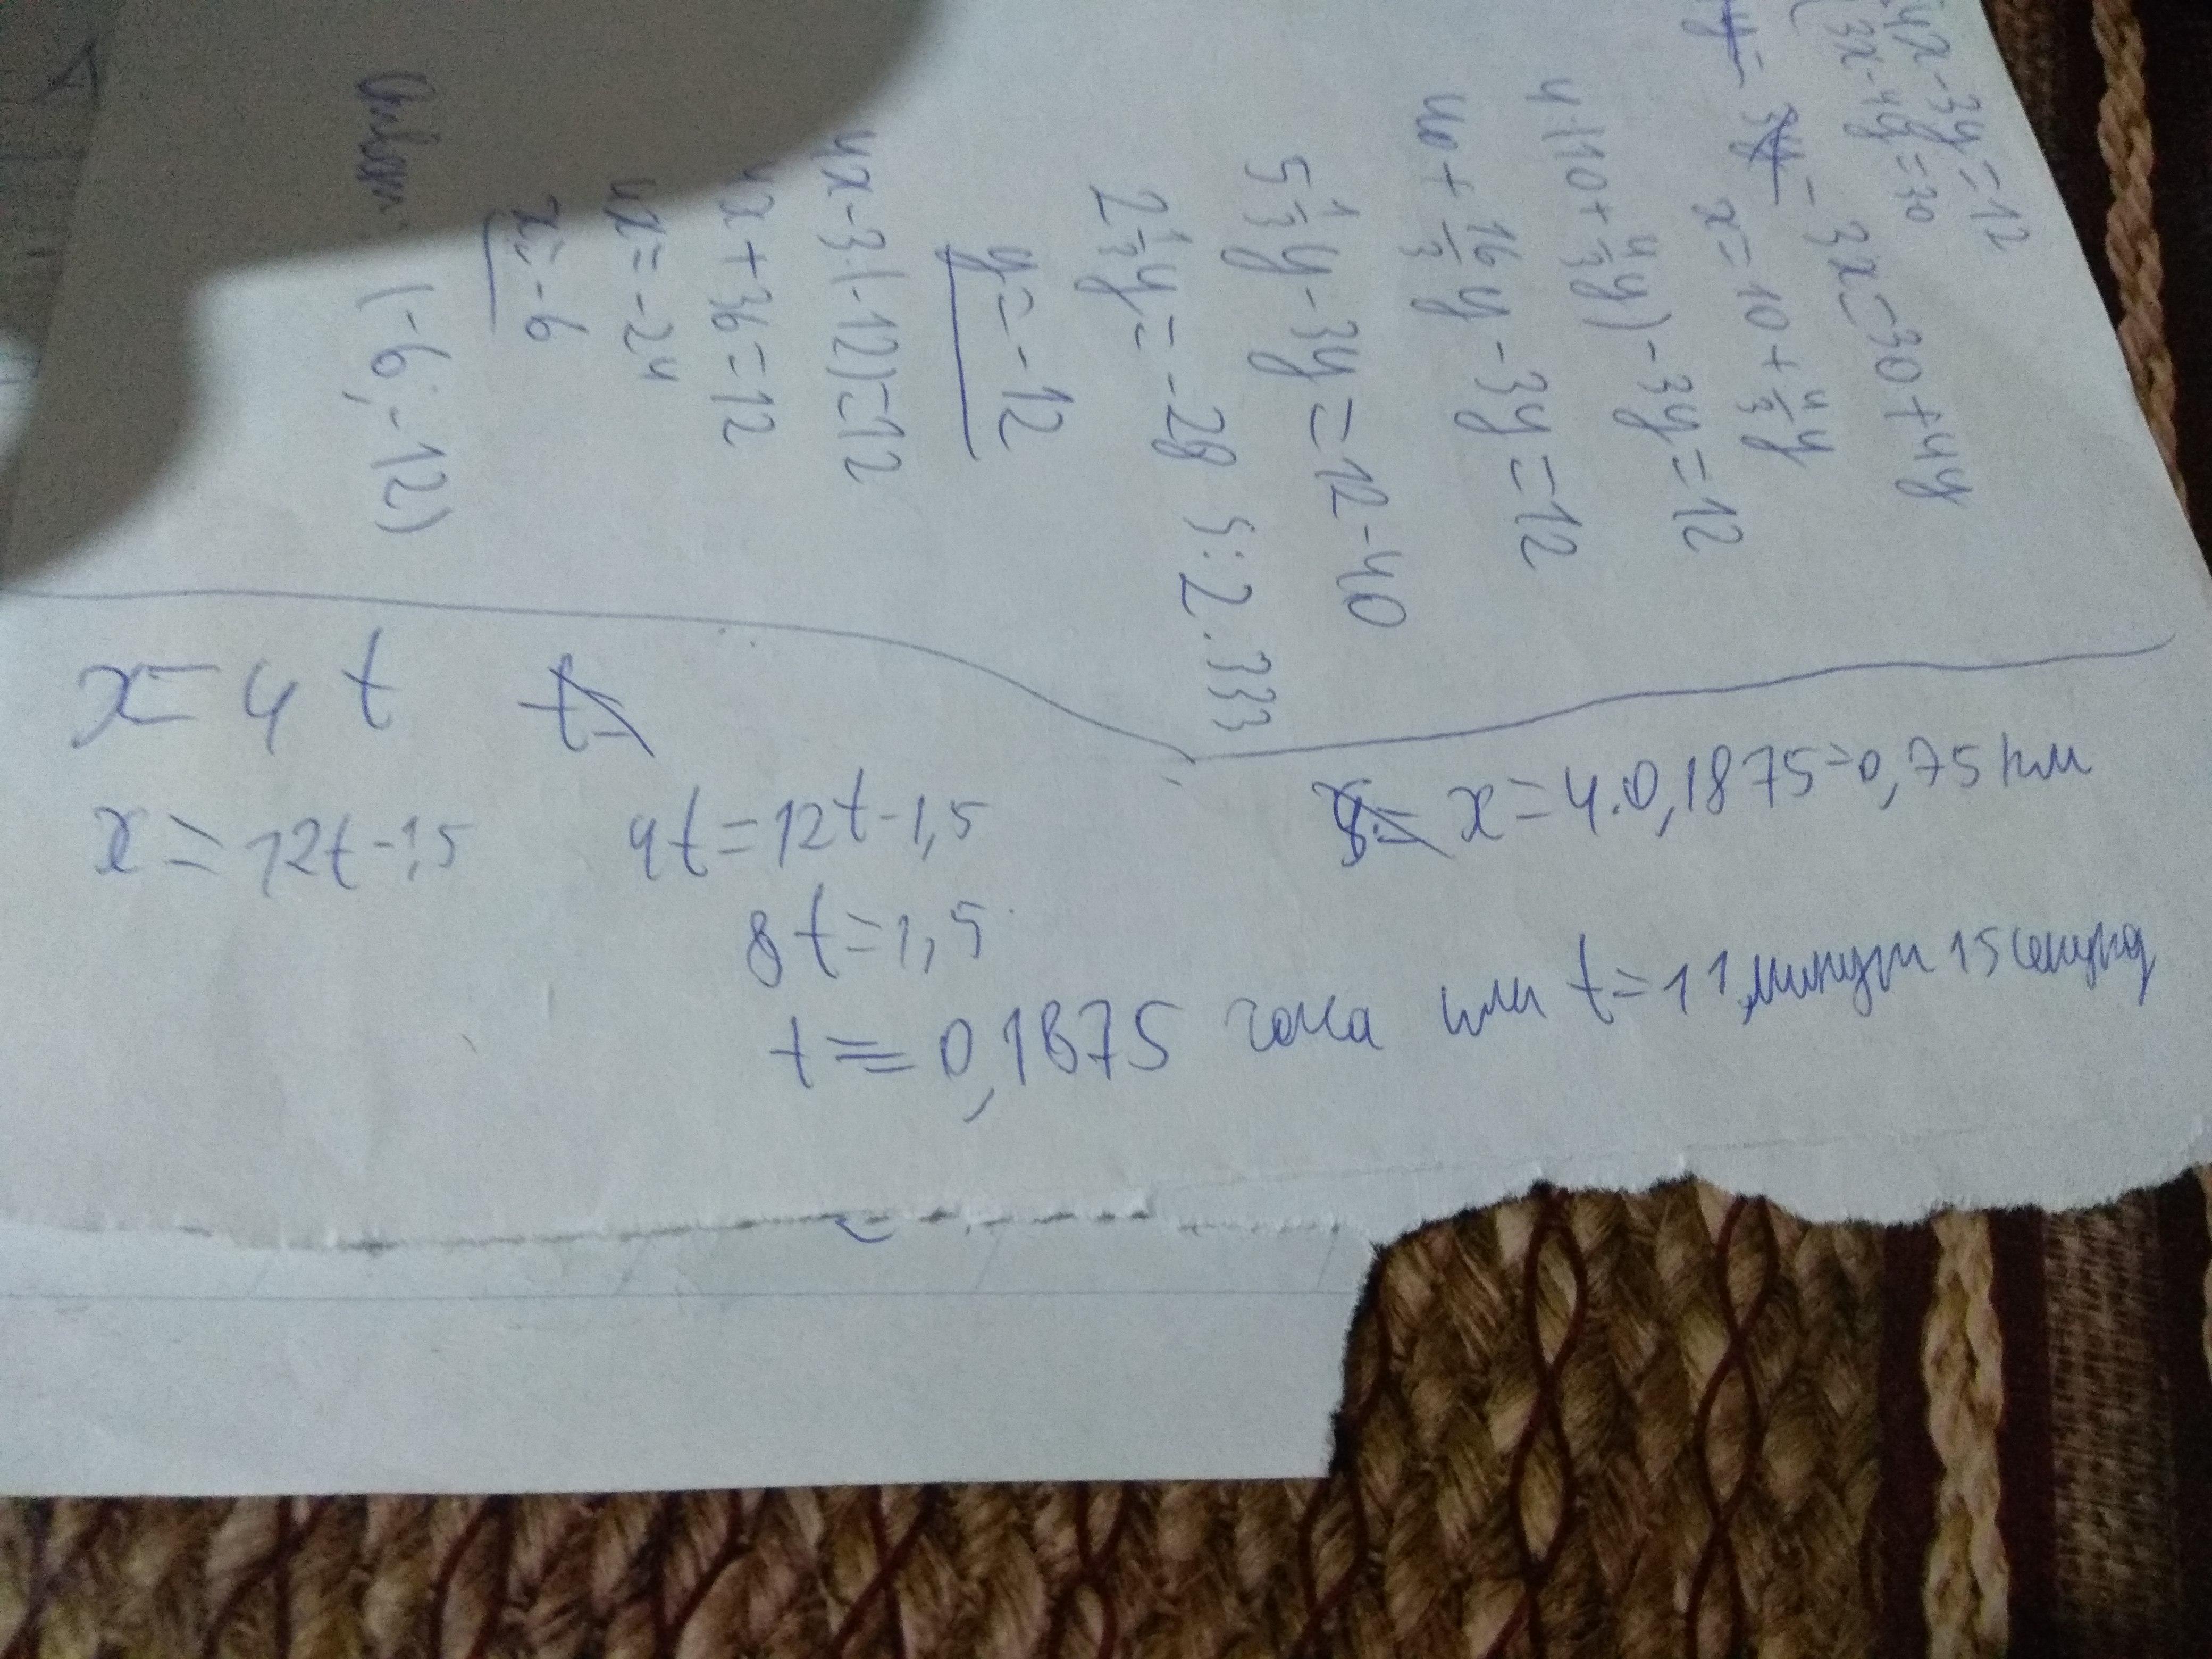 4x-3y=12
3x-4y=30
3x=30+4y
x=10+4/3y
4(10+4/3y)-3y=12
40+16/3y-3y=12
5 1/3y-3y=12-40
2 1/3y=-28 }:2.333
y=-12
4x-3(-12)=12
4x+36=12
4x=-24
x=-6
Ответ: (-6;-12)
x=4t
x=12t-1,5
4t=12t-1,5
8t=1,5
t=0,1875 часа или t=11 минут 15 секунд
x=4·0,1875=0,75 км